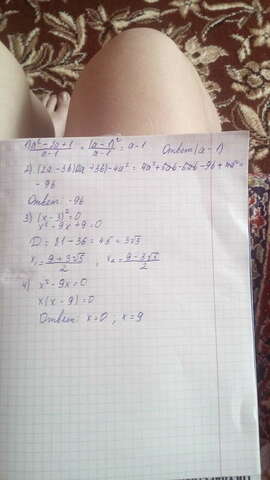 1) a² - 2a + 1 / a - 1 = (a - 1)² / a - 1 = a - 1 Ответ (a - 1)
2) (2a - 3b)(2a + 3b) - 4a² = 4a² + 6ab - 6ab - 9b + =
- 9b
Ответ: -9b
3) (x - 3)² = 0
x² - 9x + 9 = 0
D = 81 - 36 = 45 = 3√5
x₁ = 9 + 3√5 / 2 , x₂ = 9 - 3√5 / 2
4) x² - 9x = 0
x(x - 9) = 0
Ответ: x = 0 ; x = 9